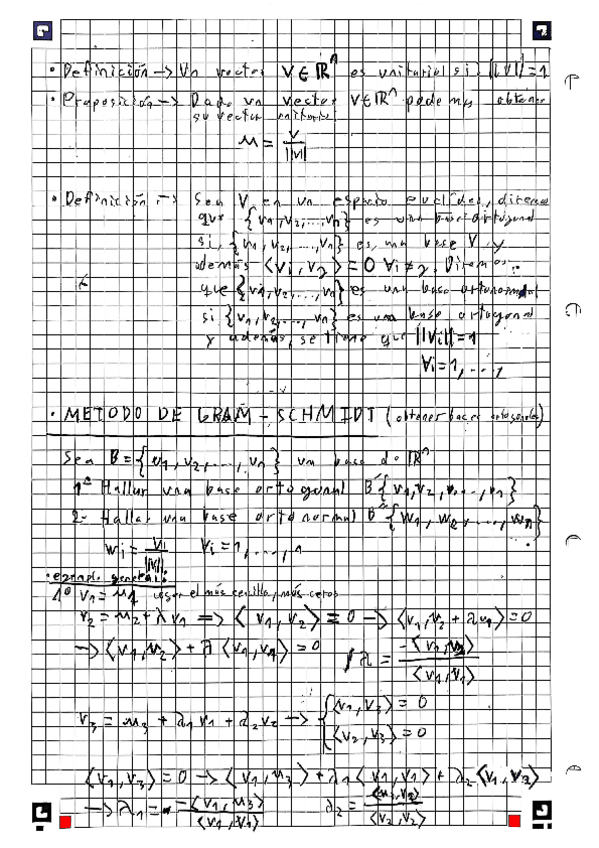 · Definición → Un vector V ∈ ℝⁿ es unitario si ||V|| = 1
· Proposición → Dado un vector V ∈ ℝⁿ podemos obtener
su vector unitario:
u = V / ||V||
· Definición → Sea V en un espacio euclídeo, diremos
que {v₁, v₂, ..., vₙ} es una base ortogonal
si, {v₁, v₂, ..., vₙ} es una base V y
además ⟨vᵢ, v₂⟩ = 0 ∀i ≠ 2. Diremos
que {v₁, v₂, ..., vₙ} es una base ortonormal
si {v₁, v₂, ..., vₙ} es una base ortogonal
y además, se tiene que ||vᵢ|| = 1
∀i = 1, ..., n
· METODO DE GRAM-SCHMIDT (obtener bases ortogonales)
Sea B = {u₁, v₂, ..., vₙ} una base de ℝⁿ
1º Hallar una base ortogonal B' {v₁, v₂, ..., vₙ}
2- Hallar una base ortonormal B'' {w₁, w₂, ..., wₙ}
wᵢ = vᵢ / ||vᵢ|| ∀i = 1, ..., n
· ejemplo general:
1º v₁ = u₁ el más sencillo, más ceros
v₂ = u₂ + λ v₁ ⇒ ⟨v₁, v₂⟩ = 0 → ⟨v₁, u₂ + λv₁⟩ = 0
→ ⟨v₁, u₂⟩ + λ ⟨v₁, v₁⟩ = 0 λ = -⟨v₁, u₂⟩ / ⟨v₁, v₁⟩
v₃ = u₃ + λ₁ v₁ + λ₂ v₂ → { ⟨v₁, v₃⟩ = 0
⟨v₂, v₃⟩ = 0
⟨v₁, v₃⟩ = 0 → ⟨v₁, u₃⟩ + λ₁ ⟨v₁, v₁⟩ + λ₂ ⟨v₁, v₃⟩
→ λ₁ = -⟨v₁, u₃⟩ / ⟨v₁, v₁⟩ λ₂ = -⟨u₃, v₂⟩ / ⟨v₂, v₂⟩